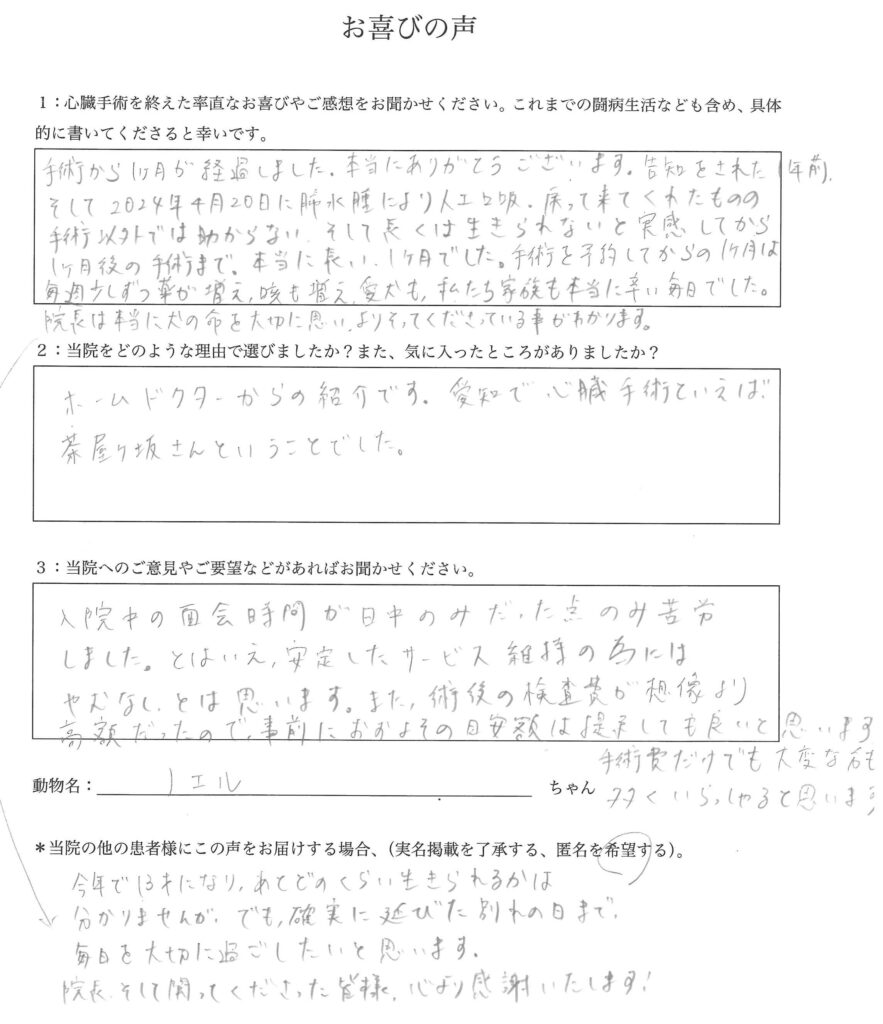 お喜びの声
１：心臓手術を終えた率直なお喜びやご感想をお聞かせください。これまでの闘病生活なども含め、具体
的に書いてくださると幸いです。
手術から1ヶ月が経過しました。本当にありがとうございます。告知をされた1年前、
そして2024年4月20日に肺水腫により人工呼吸、戻って来てくれたものの
手術以外では助からない、そして長くは生きられないと実感してから
1ヶ月後の手術まで、本当に長い、1ヶ月でした。手術を予約してからの1ヶ月は
毎週少しずつ薬が増え、咳も増え、愛犬も、私たち家族も本当に辛い毎日でした。
院長は本当に犬の命を大切に思い、よりそってくださっている事がわかります。
２：当院をどのような理由で選びましたか？また、気に入ったところがありましたか？
ホームドクターからの紹介です。愛知で心臓手術といえば
茶屋ヶ坂さんということでした。
３：当院へのご意見やご要望などがあればお聞かせください。
入院中の面会時間が日中のみだった点のみ苦労
しました。とはいえ、安定したサービス維持の為には
やむなし、とは思います。また、術後の検査費が想像より
高額だったので、事前におおよその目安額は提示しても良いと思います
手術費だけでも大変な方も
多くいらっしゃると思います
動物名：ノエル ちゃん
＊当院の他の患者様にこの声をお届けする場合、（実名掲載を了承する、匿名を希望する）。
今年で13才になり、あとどのくらい生きられるかは
分かりませんが、でも、確実に延びた別れの日まで、
毎日を大切に過ごしたいと思います。
院長、そして関ってくださった皆様、心より感謝いたします！